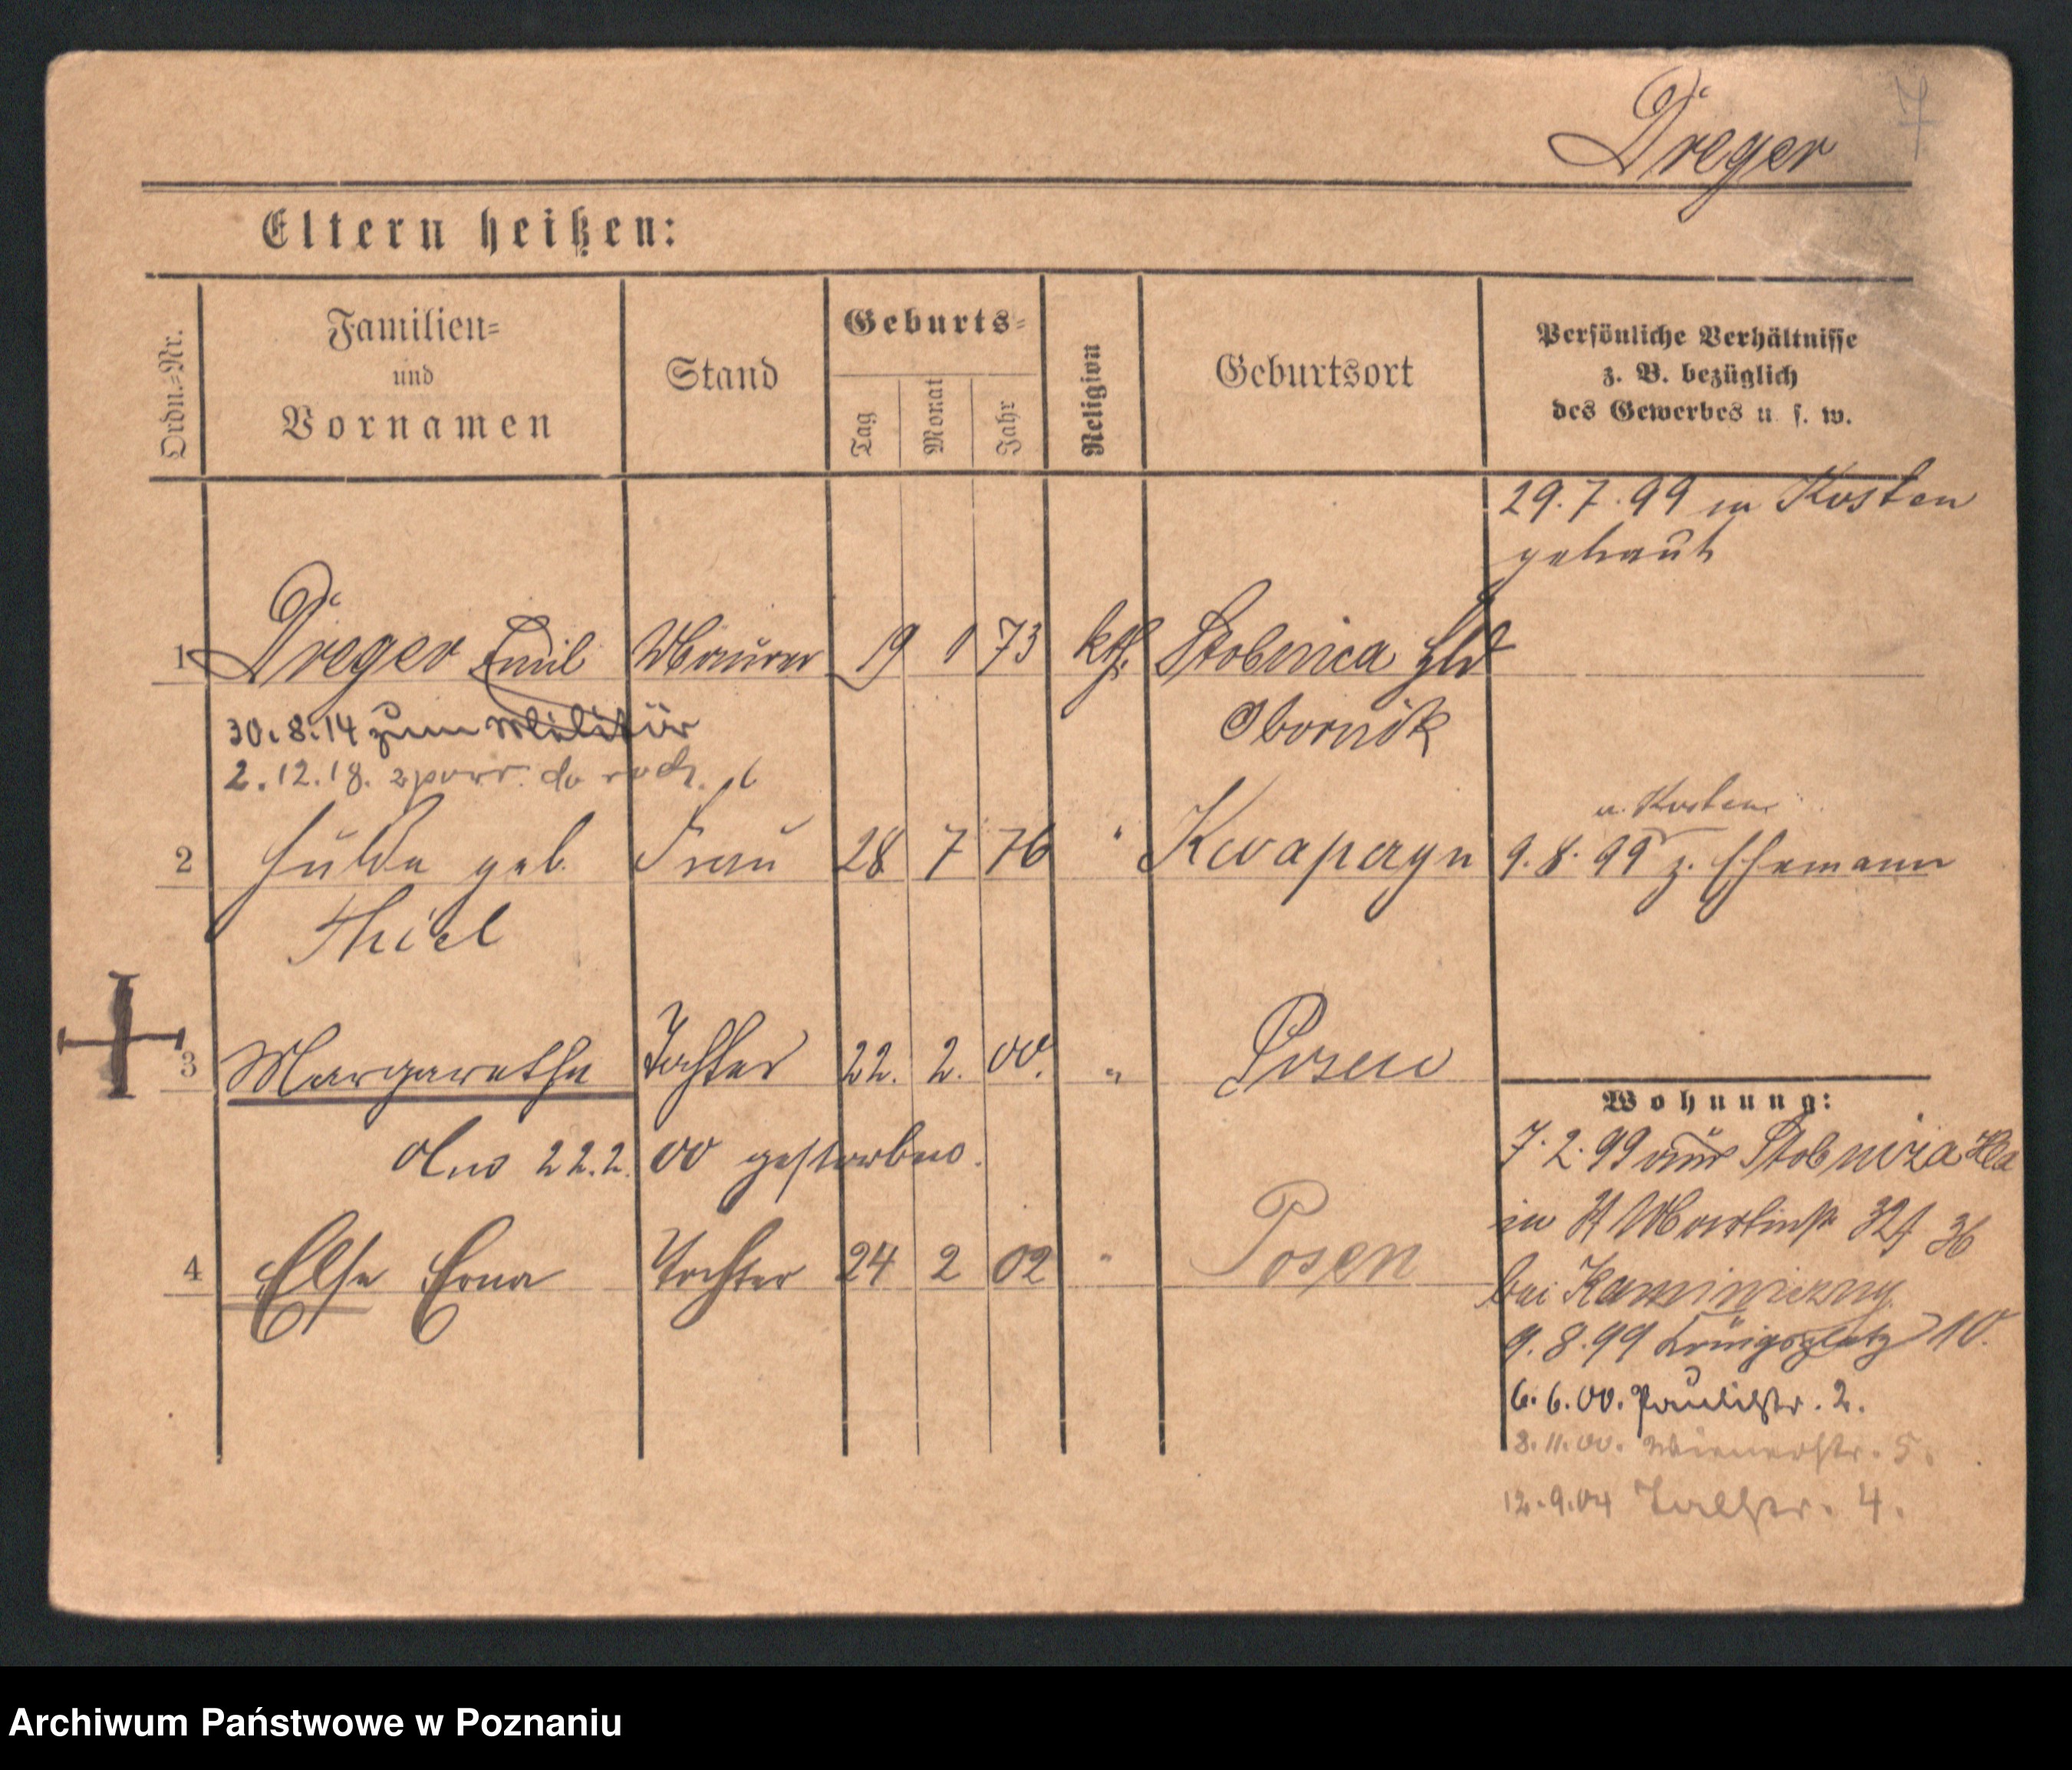 7
Dreger
Eltern heißen:
Ordn.=Nr.
Familien=
und
Vornamen
Stand
Geburts=
Tag
Monat
Jahr
Religion
Geburtsort
Persönliche Verhältnisse
z. B. bezüglich
des Gewerbes u. s. w.
29.7.99 in Kosten
getraut
1 Dreger Emil Maurer 19 1 73 kth. Stobnica Hld
Obornik
30.8.14 zum Militär
2.12.18. do
u. Kosten
2 Hulda geb. Frau 28 7 76 " 9.8.99 z. Ehemann
Thiel
3 Margarethe Tochter 22. 2. 00. " Posen
Am 22.2.00 gestorben.
4 Else Erna Tochter 24 2 02 " Posen
Wohnung:
7.2.99 aus Stobniza Hld
in St Martinstr 36
bei
9.8.99 Königsplatz 10.
6.6.00. Paulistr. 2.
8.11.00. Wienerstr. 5.
12.9.04 Talstr. 4.
Archiwum Państwowe w Poznaniu